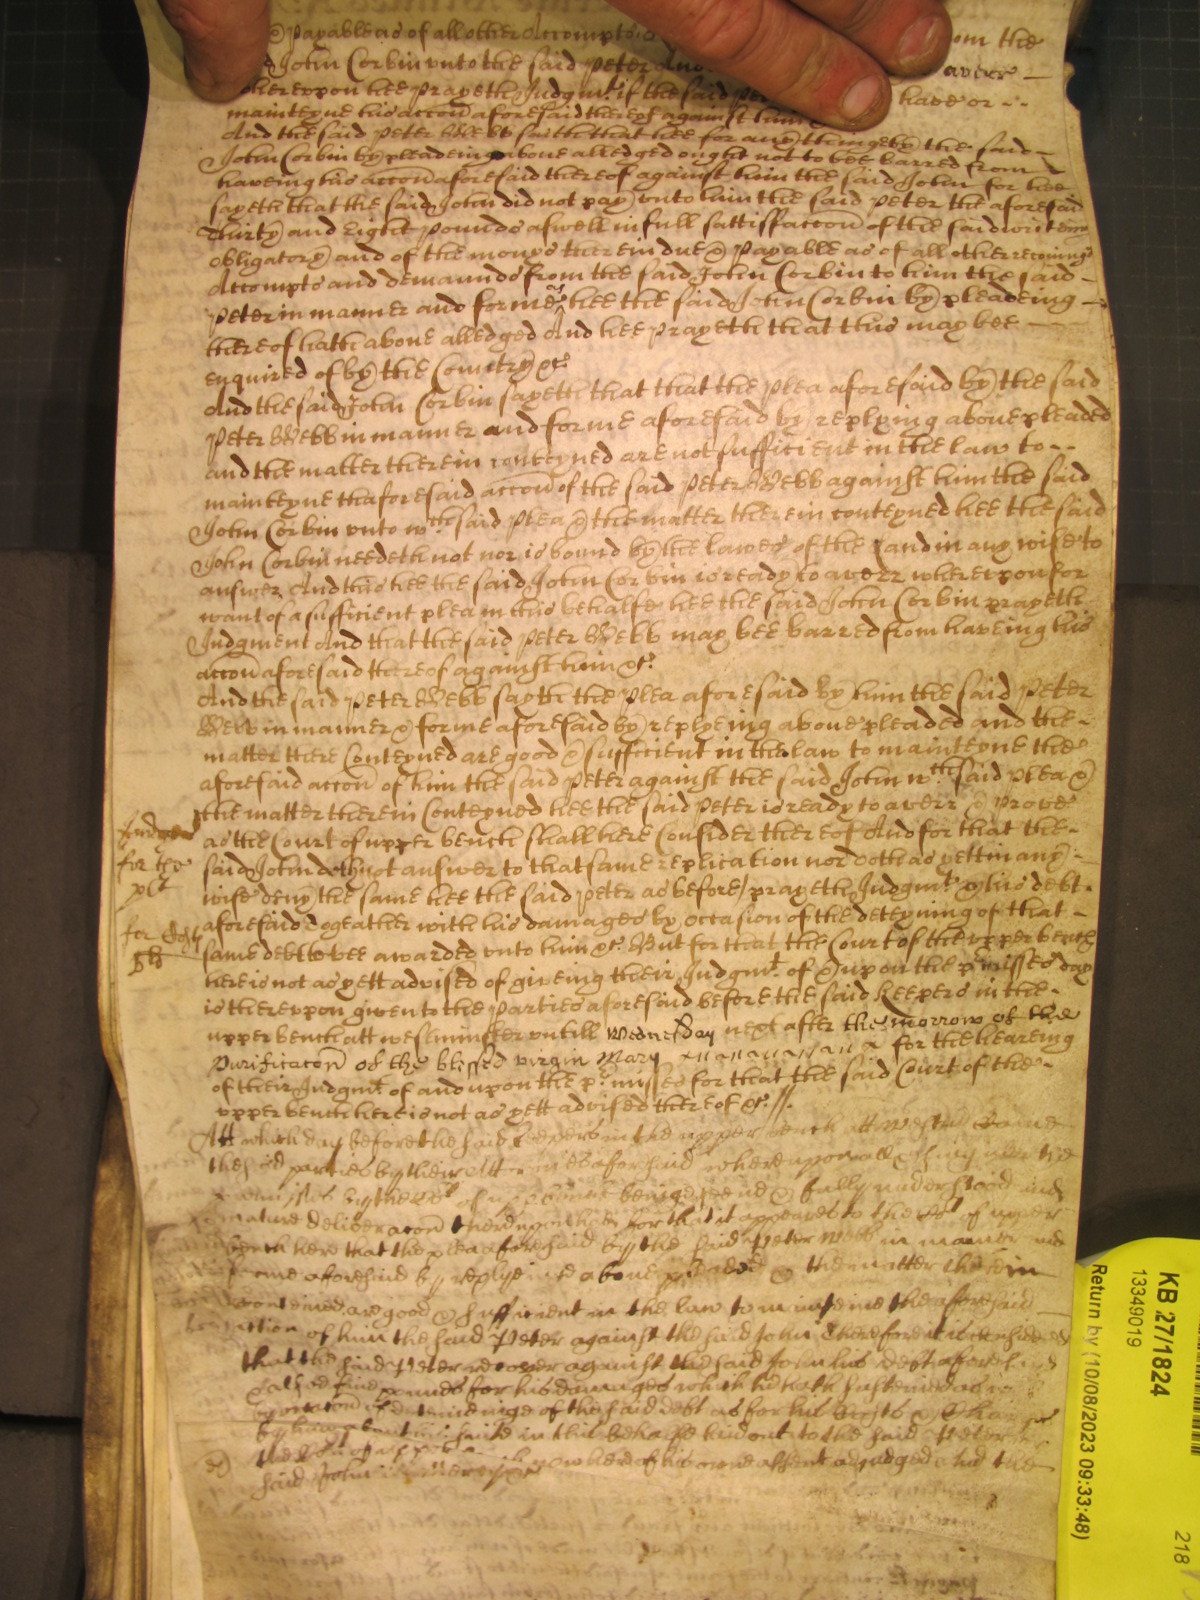 & payable as of all other Accompts
om the
John Corbin unto the said Peter And
averr
whereupon hee prayeth Judgmt. if the said Pe
have or
mainteyne his accon aforesaid thereof against him
And the said Peter Webb saith that hee for any thinge by the said
John Corbin by pleadeing above alledged ought not to bee barred from
haveing his accon aforesaid thereof against him the said John for hee
sayeth that the said John did not pay unto him the said Peter the aforesaid
thirty and eight pounds aswell in full sattisfaccon of the said writeing
obligatory and of the monys therein due & payable as of all other reconings
Accompts and demaunds from the said John Corbin to him the said
Peter in manner and forme as hee the said John Corbin by pleadeing
thereof hath above alledged And hee prayeth that this may bee
enquired of by the Comtry &c.
And the said John Corbin sayeth that that the plea aforesaid by the said
Peter Webb in manner and forme aforesaid by replying above pleaded
and the matter therein conteyned are not sufficient in the law to
mainteyne thaforesaid accon of the said Peter Webb against him the said
John Corbin unto wch. said plea & the matter therein conteyned hee the said
John Corbin needeth not nor is bound by the lawes of the land in any wise to
answer And this hee the said John Corbin is ready to averr whereupon for
want of a sufficient plea in this behalfe hee the said John Corbin prayeth
Judgment And that the said Peter Webb may bee barred from haveing his
accon aforesaid thereof against him &c.
And the said Peter Webb sayth the plea aforesaid by him the said Peter
Webb in manner & forme aforesaid by replyeing above pleaded and the
matter there Conteyned are good & sufficient in the law to mainteyne the
aforesaid accon of him the said Peter against the said John wch. said plea &
the matter therein Conteyned hee the said Peter is ready to averr & prove
as the Court of upper bench shall here Consider thereof And for that the
said John doth not answer to that same replication nor doth as yett in any
wise deny the same hee the said Peter as before prayeth Judgmt. & his debt
aforesaid togeather with his damages by occasion of the deteyning of that
same debt to bee awarded unto him &c. But for that the Court of the upper bench
here is not as yett advised of giveing their Judgmt. of & upon the p'misses day
is thereupon given to the Parties aforesaid before the said Keepers in the
upper bench att Westminster untill Wednesday next after the morrow of the
Purificacon of the blissed virgin Mary for the heareing
of their Judgmt. of and upon the p'misses for that the said Court of the
upper bench here is not as yett advised thereof &c. //.
Judgt
for the
plt
for Costs
Att which day before the said Keepers in the upper bench att Westmr Came
the sd parties by their Attornies aforesaid whereupon all & singuler the
premisses by the Cot of upper bench being seene & fully understood and
mature deliberacon thereupon had for that it appeares to the Cot of upper
bench here that the plea aforesaid by the said Peter Webb in manner and
forme aforesaid by replyeinge above pleaded & the matter therein
conteined are good & sufficient in the law to mainteine the aforesaid
accion of him the said Peter against the said John Therefore it is considered
that the said Peter recover against the said John his debt aforesaid
and five pounds for his damages which he hath susteined as
occasion of deteineinge of the said debt as for his Costs & Charges
by him about his suite in this behalfe laid out to the said Peter
by the Cot of upper bench now here of his owne assent adjudged And the
said John in mercy &c
KB 27/1824
13349019
Return by (10/08/2023 09:33:48)
218